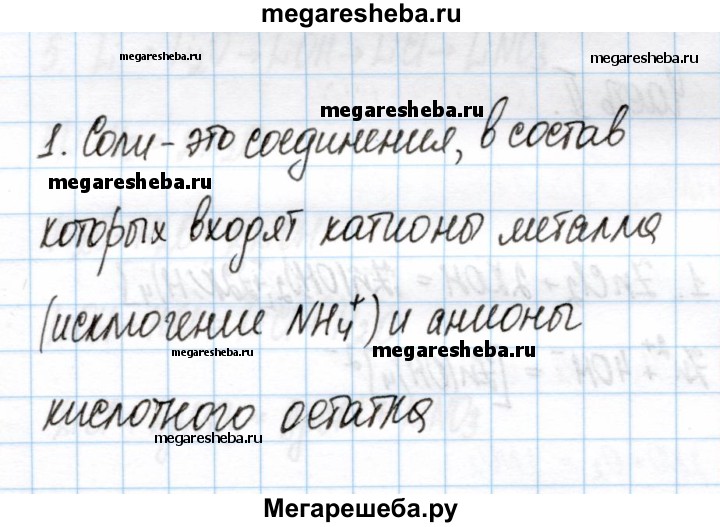 megaresheba.ru
megaresheba.ru
megaresheba.ru
1. Соли - это соединения, в состав
megaresheba.ru
которых входят катионы металла
(исключение NH₄⁺) и анионы
megaresheba.ru
megaresheba.ru
кислотного остатка
megaresheba.ru
Мегарешеба.ру